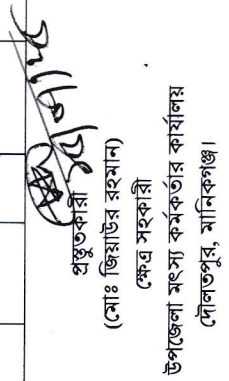 প্রস্তুতকারী
(মোঃ জিয়াউর রহমান)
ক্ষেত্র সহকারী
উপজেলা মৎস্য কর্মকর্তার কার্যালয়
দৌলতপুর, মানিকগঞ্জ।